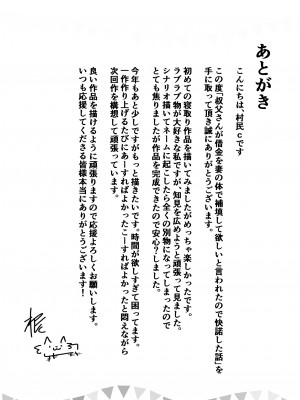 あとがき
こんにちは、村民cです
この度「叔父さんが借金を妻の体で補填して欲しいと言われたので快諾した話」を
手に取って頂き誠にありがとうございます。
初めての寝取り作品を描いてみましたがめっちゃ楽しかったです。
ラブラブ物が大好きな私ですが、知見を広めようと頑張って見ました。
シナリオ描いてネームに起こしたら全くの別物になってしまったので
とても焦りましたが作品を完成できたので安心しました。
今年もあと少しですがもっと描きたいです。時間が欲しすぎて困ってます。
一作作り上げるたびにあーすればよかったこーすればよかったと悶えながら
次回作を構想して頑張っています。
良い作品を描けるように頑張りますので応援よろしくお願いします。
いつも応援してくださる皆様本当にありがとうございます！